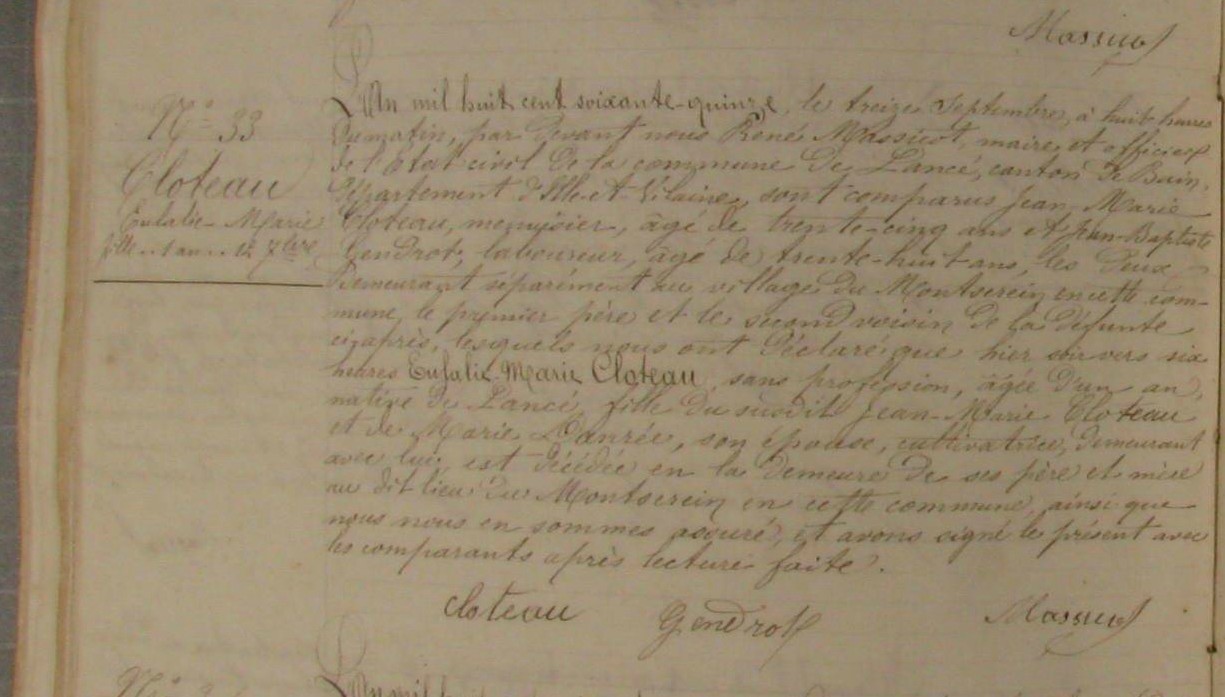 Massicot
N° 33
Cloteau
Eulalie-Marie
fille .. 1 an .. 12 7bre
L'An mil huit cent soixante-quinze, le treize Septembre, à huit heures
du matin, par devant nous René Massicot, maire et officier
de l'Etat civil de la commune de Lancé, canton de Bain,
Département d'Ille-et-Vilaine, sont comparus Jean Marie
Cloteau, menuisier, âgé de trente-cinq ans et Jean-Baptiste
Gendrot, laboureur, âgé de trente-huit ans, les deux
demeurant séparément au village du Montserein en cette com-
mune, le premier père et le second voisin de la défunte
ci-après, lesquels nous ont déclaré que hier soir vers six
heures Eulalie-Marie Cloteau, sans profession, âgée d'un an,
native de Lancé, fille du susdit Jean-Marie Cloteau
et de Marie Danrée, son épouse, cultivatrice, demeurant
avec lui, est décédée en la demeure de ses père et mère
au dit lieu du Montserein en cette commune, ainsi que
nous nous en sommes assuré, et avons signé le présent avec
les comparants après lecture faite.
cloteau Gendrot Massicot
L'An mil